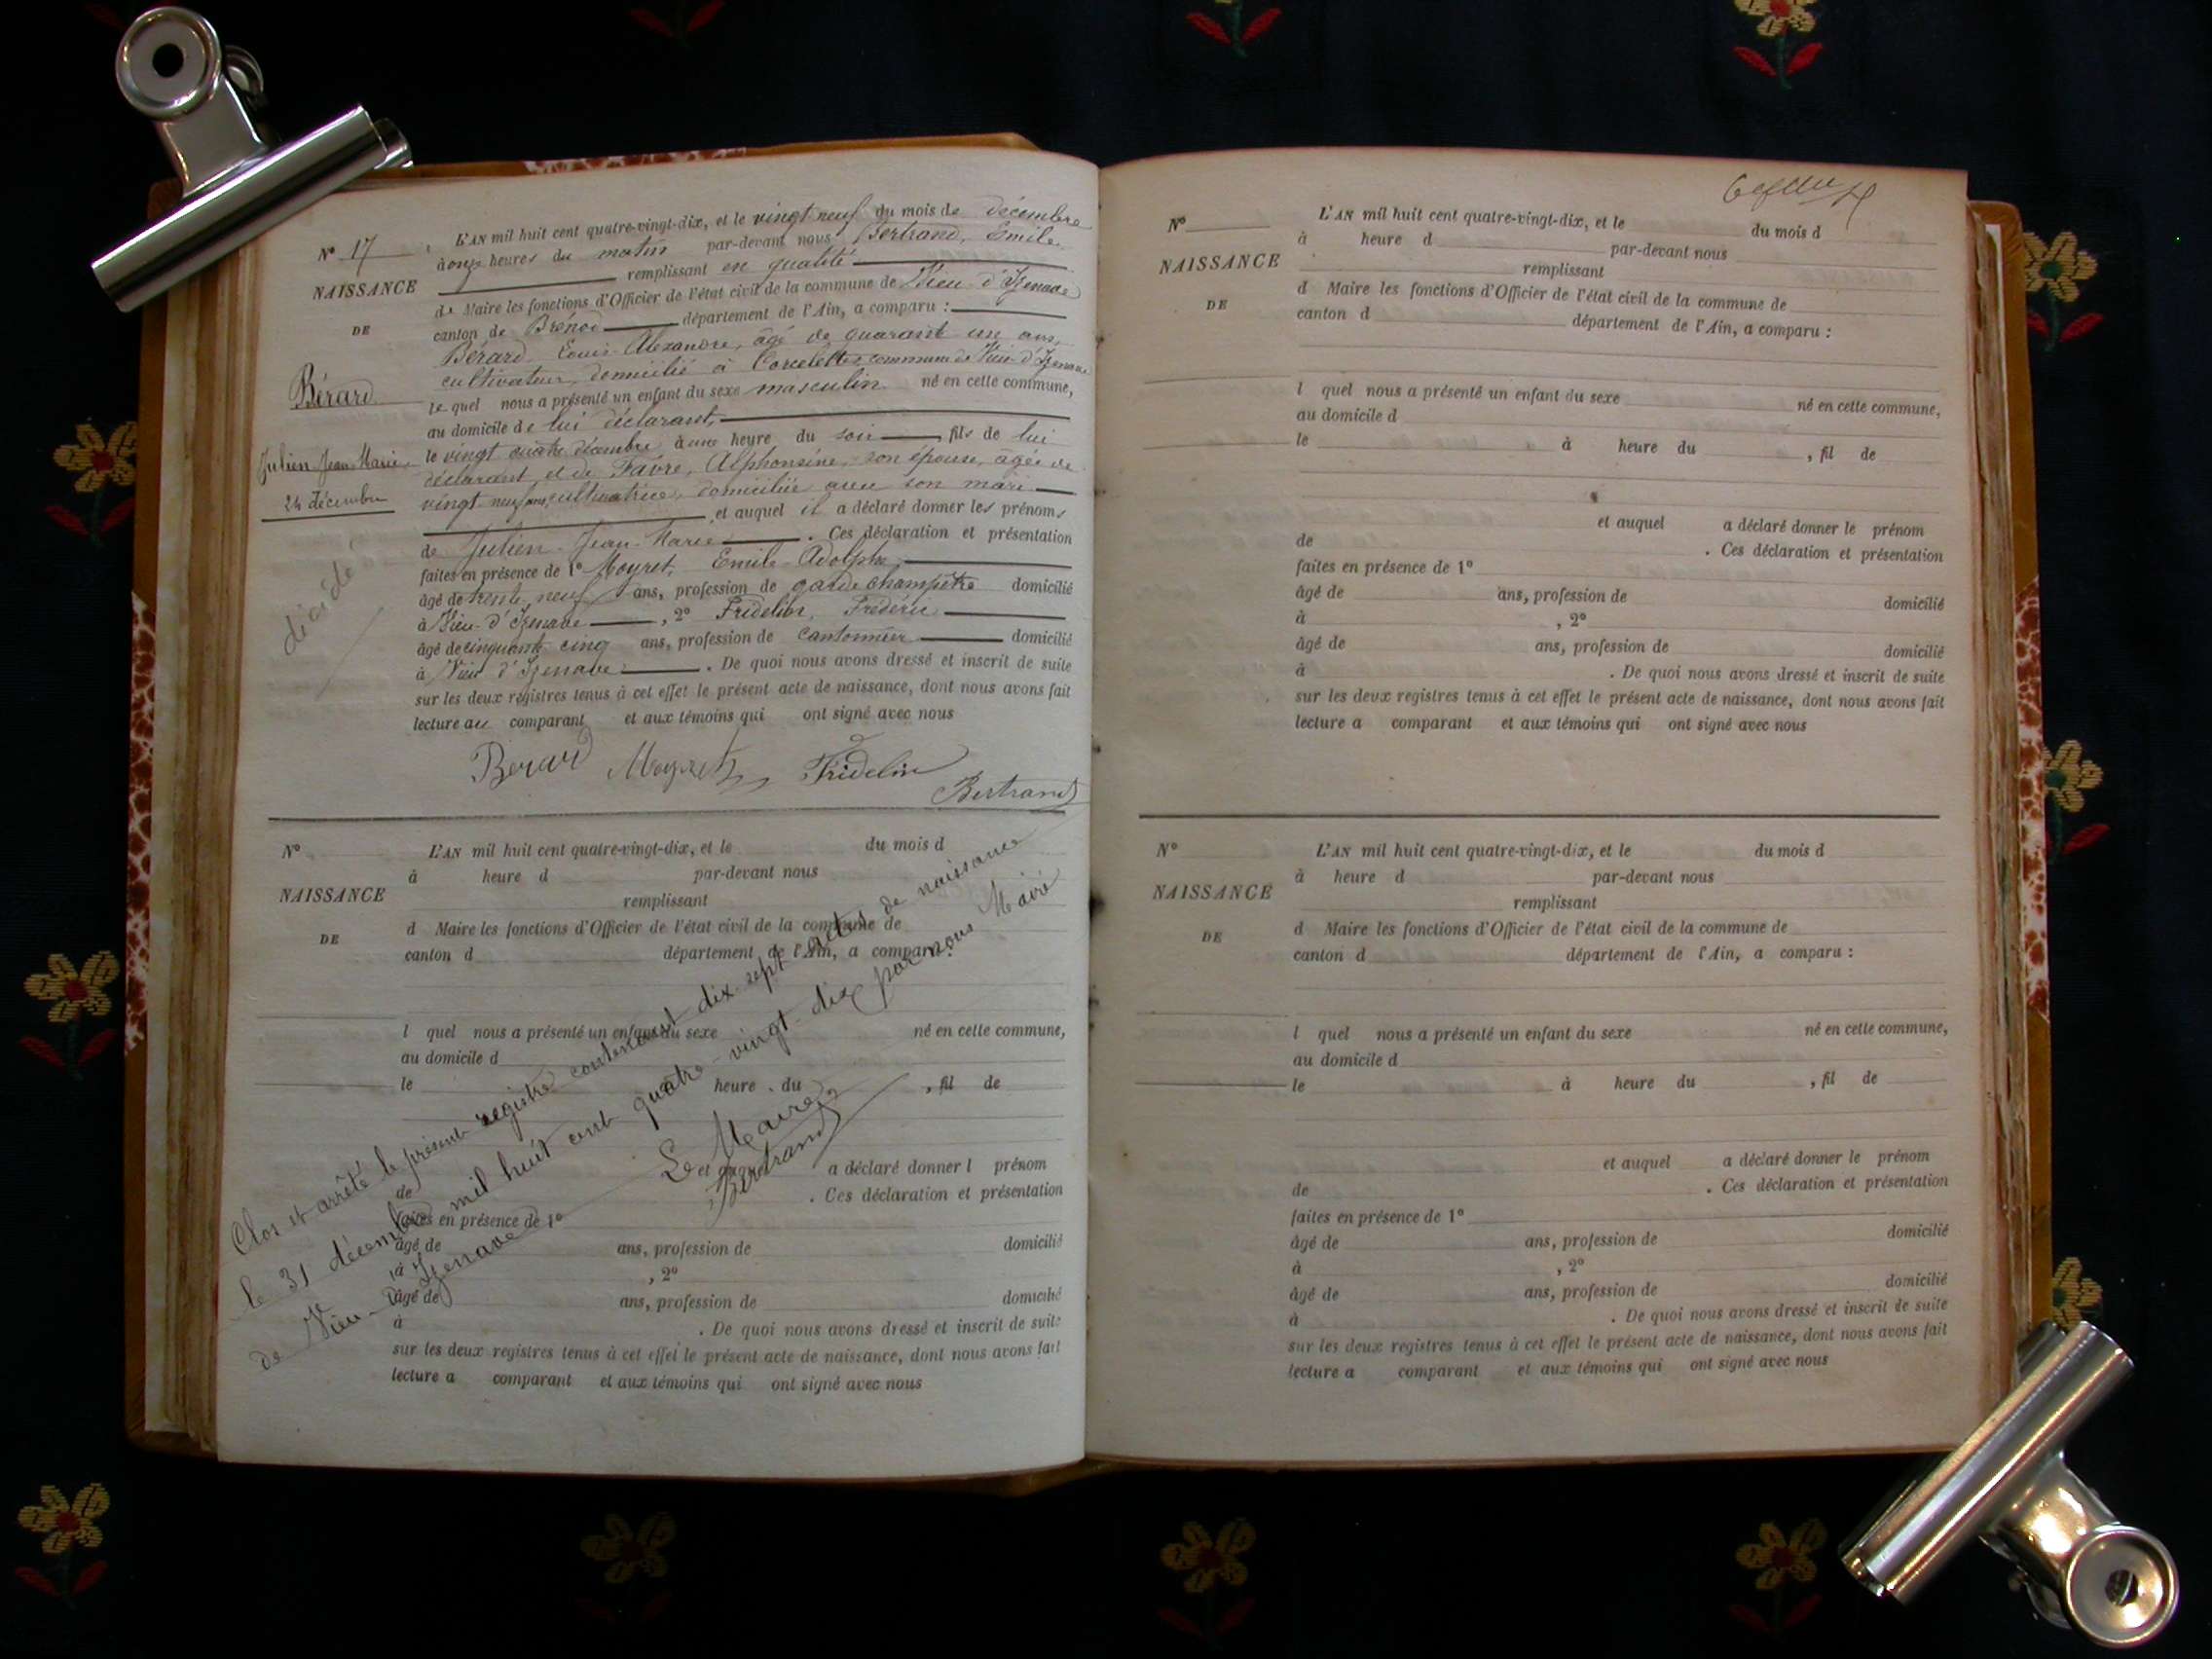 N° 17
NAISSANCE
DE
Bérard
Julien Jean-Marie
24 décembre
décédé
L'AN mil huit cent quatre-vingt-dix, et le vingt neuf du mois de décembre
à onze heures du matin par-devant nous Bertrand, Emile
remplissant en qualité
de Maire les fonctions d'Officier de l'état civil de la commune de Vieu-d'Izenave
canton de Brénod département de l'Ain, a comparu :
Bérard Louis Alexandre, âgé de quarante un ans,
cultivateur, domicilié à Corcelette, commune de Vieu-d'Izenave
le quel nous a présenté un enfant du sexe masculin né en cette commune,
au domicile de lui déclarant,
le vingt quatre décembre à une heure du soir, fils de lui
déclarant et de Favre, Alphonsine, son épouse, âgée de
vingt neuf ans, cultivatrice, domiciliée avec son mari
et auquel il a déclaré donner les prénoms
de Julien Jean-Marie. Ces déclaration et présentation
faites en présence de 1° Moyret, Emile Adolphe,
âgé de trente neuf ans, profession de garde champêtre domicilié
à Vieu-d'Izenave, 2° Fridelin, Frédéric
âgé de cinquante cinq ans, profession de cantonnier domicilié
à Vieu d'Izenave. De quoi nous avons dressé et inscrit de suite
sur les deux registres tenus à cet effet le présent acte de naissance, dont nous avons fait
lecture au comparant et aux témoins qui ont signé avec nous
Bérard Moyret Fridelin
Bertrand
N°
NAISSANCE
DE
L'AN mil huit cent quatre-vingt-dix, et le du mois d
à heure d par-devant nous
remplissant
d Maire les fonctions d'Officier de l'état civil de la commune de
canton d département de l'Ain, a comparu :
l quel nous a présenté un enfant du sexe né en cette commune,
au domicile d
le à heure du , fil de
et auquel a déclaré donner l prénom
de . Ces déclaration et présentation
faites en présence de 1°
âgé de ans, profession de domicilié
à , 2°
âgé de ans, profession de domicilié
à . De quoi nous avons dressé et inscrit de suite
sur les deux registres tenus à cet effet le présent acte de naissance, dont nous avons fait
lecture a comparant et aux témoins qui ont signé avec nous
Clos et arrêté le présent registre contenant dix-sept actes de naissance
le 31 décembre mil huit cent quatre-vingt-dix par nous Maire
de Vieu-d'Izenave
Le Maire
Bertrand
N°
NAISSANCE
DE
L'AN mil huit cent quatre-vingt-dix, et le du mois d
à heure d par-devant nous
remplissant
d Maire les fonctions d'Officier de l'état civil de la commune de
canton d département de l'Ain, a comparu :
l quel nous a présenté un enfant du sexe né en cette commune,
au domicile d
le à heure du , fil de
et auquel a déclaré donner le prénom
de . Ces déclaration et présentation
faites en présence de 1°
âgé de ans, profession de domicilié
à , 2°
âgé de ans, profession de domicilié
à . De quoi nous avons dressé et inscrit de suite
sur les deux registres tenus à cet effet le présent acte de naissance, dont nous avons fait
lecture a comparant et aux témoins qui ont signé avec nous
N°
NAISSANCE
DE
L'AN mil huit cent quatre-vingt-dix, et le du mois d
à heure d par-devant nous
remplissant
d Maire les fonctions d'Officier de l'état civil de la commune de
canton d département de l'Ain, a comparu :
l quel nous a présenté un enfant du sexe né en cette commune,
au domicile d
le à heure du , fil de
et auquel a déclaré donner le prénom
de . Ces déclaration et présentation
faites en présence de 1°
âgé de ans, profession de domicilié
à , 2°
âgé de ans, profession de domicilié
à . De quoi nous avons dressé et inscrit de suite
sur les deux registres tenus à cet effet le présent acte de naissance, dont nous avons fait
lecture a comparant et aux témoins qui ont signé avec nous